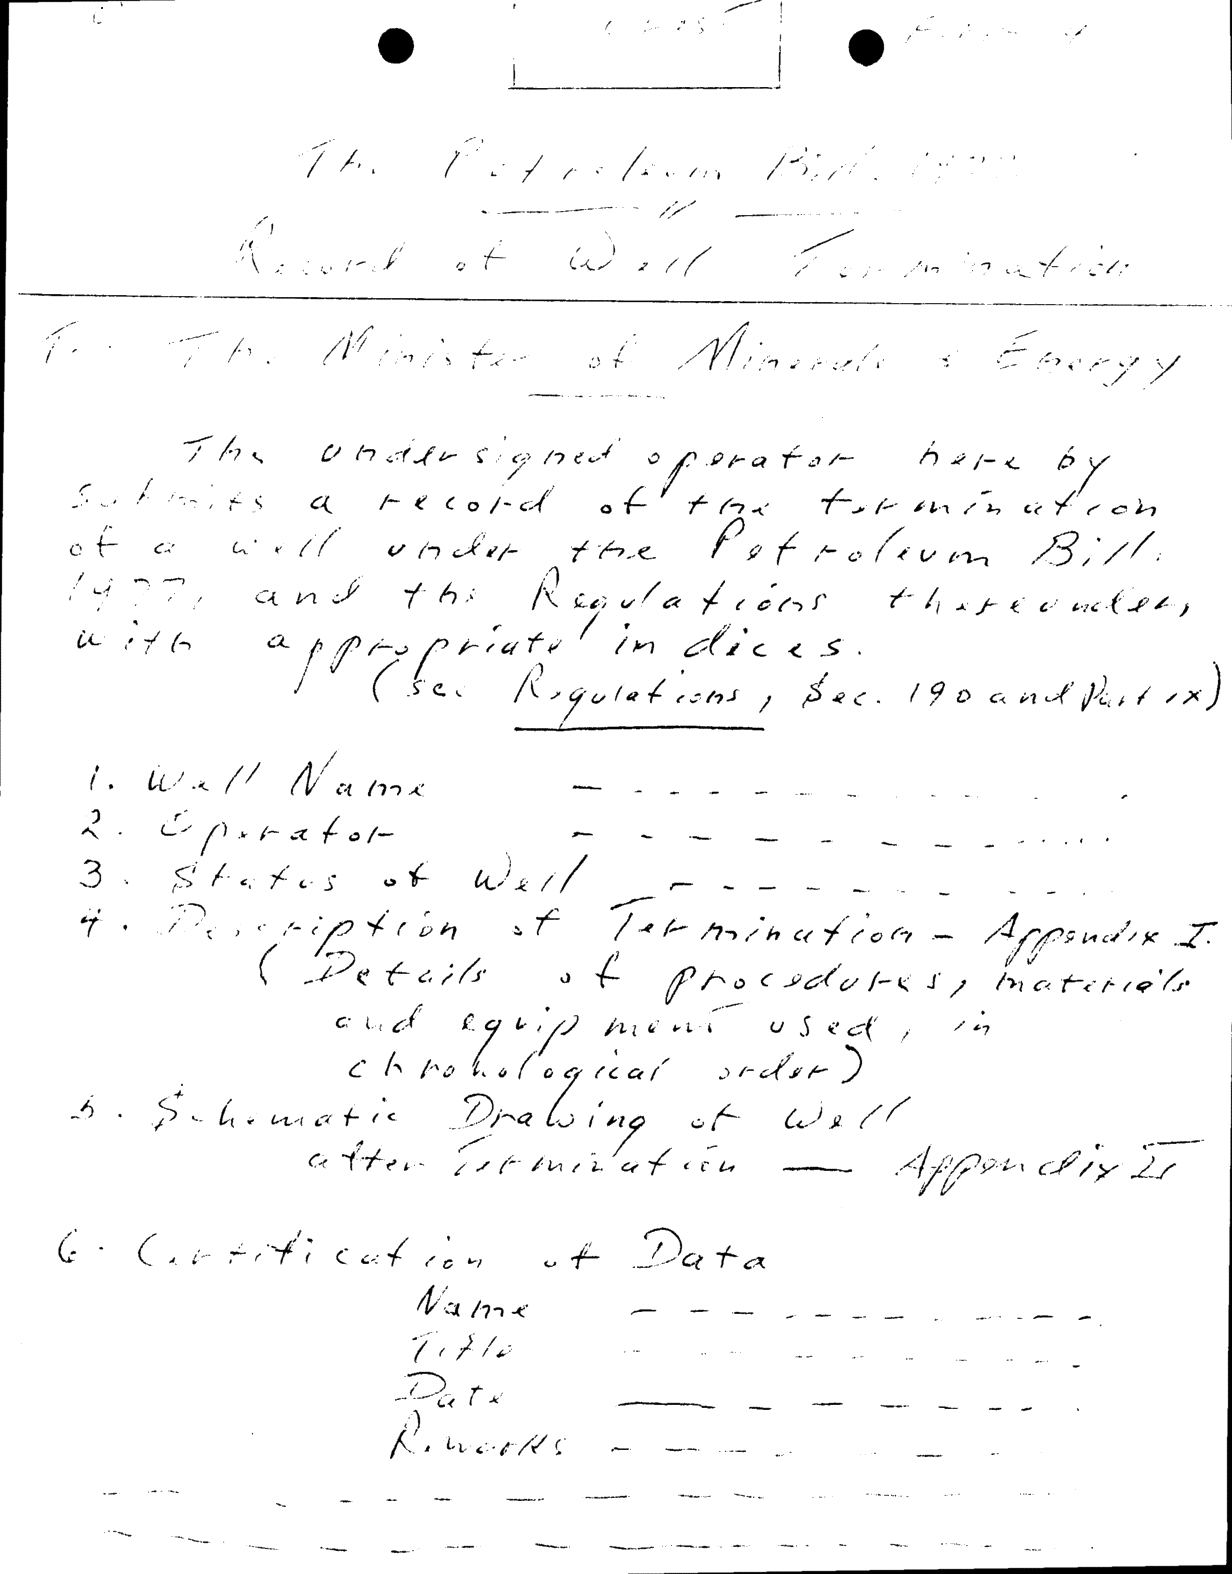 The Petroleum Bill, 1977
Record of Well Termination
To: The Minister of Minerals & Energy
The undersigned operator here by
submits a record of the termination
of a well under the Petroleum Bill.
1977, and the Regulations thereunder,
with appropriate indices.
(see Regulations, Sec. 190 and Part IX)
1. Well Name
2. Operator
3. Status of Well
4. Description of Termination - Appendix I.
(Details of procedures, materials
and equipment used, in
chronological order)
5. Schematic Drawing of Well
after Termination — Appendix II
6. Certification of Data
Name
Title
Date
Remarks